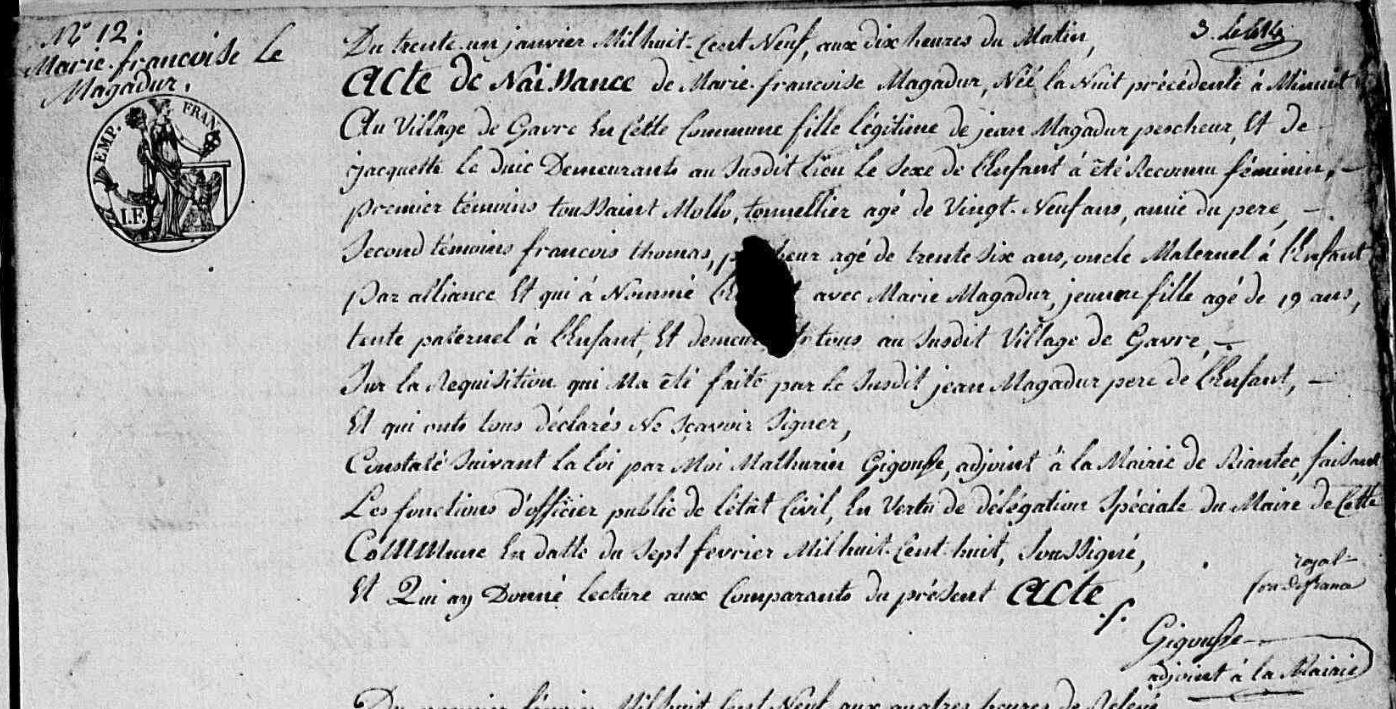 N° 12.
Marie francoise Le
Magadur.
EMP. FRAN
I.F.
Du trente-un janvier Mil huit-Cent Neuf, aux dix heures du Matin,
Acte de Naissance de Marie francoise Magadur, Néé la Nuit précédente à Minuit
Au Village de Gavre En Cette Commune fille légitime de jean Magadur pescheur, Et de
jacquette Le duic Demeurants au susdit Lieu Le Sexe de l'Enfant à été Reconnu féminin,
premier témoins toussaint Mollo, tonnellier agé de Vingt-Neuf ans, amie du pere,
Second témoins francois thomas, agé de trente six ans, oncle Maternel à l'Enfant
Par alliance Et qui à Nommé avec Marie Magadur, jeunne fille agé de 19 ans,
tente paternel à l'Enfant, Et tous au susdit Village de Gavre,
Sur la Requisition qui Ma été faite par le Susdit jean Magadur pere de l'Enfant,
Et qui onts tous déclarés Ne sçavoir Signer,
Constaté suivant la loi par Moi Mathurin Gigousse, adjoint à la Mairie de Riantec, faisant
Les fonctions d'officier public de l'état Civil, En Vertu de délégation Spéciale du Maire de Cette
Commune En datte du sept fevrier Mil huit-Cent-huit, Soussigné,
Et Qui ay Donné lecture aux Comparants du présent Acte
Gigousse
adjoint à la Mairie
Du premier février Mil huit Cent Neuf aux quatres heures de Relevé